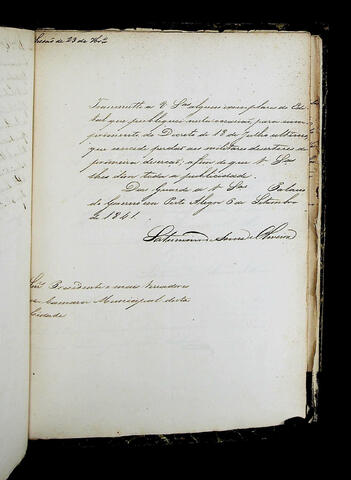 Sessão de 23 de 7bro
Transmitto a V Sas alguns exemplares do Edi
tal que publiquei nesta occasião para cum
primento do Decreto de 18 de Julho ultimo
que concede perdão aos militares desertores de
primeira deserção, afim de que V Sas
lhes dem toda a publicidade.
Deos Guarde a V Sas Palacio
do Governo em Porto Alegre 6 de Setembro
de 1841.
Saturnino de Souza e Oliveira
Snrs Presidente e mais Vereadores
da Camara Municipal desta
Cidade